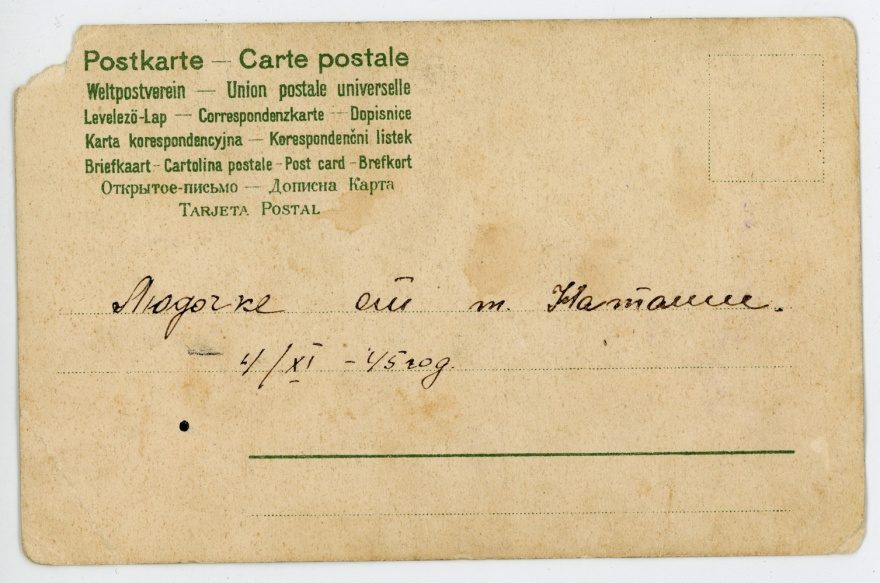 Postkarte — Carte postale
Weltpostverein — Union postale universelle
Levelező-Lap — Correspondenzkarte — Dopisnice
Karta korespondencyjna — Korespondenční listek
Briefkaart - Cartolina postale - Post card - Brefkort
Открытое-письмо — Дописна Карта
Tarjeta Postal
Людочке от т. Наташи.
4/XI - 45 год.